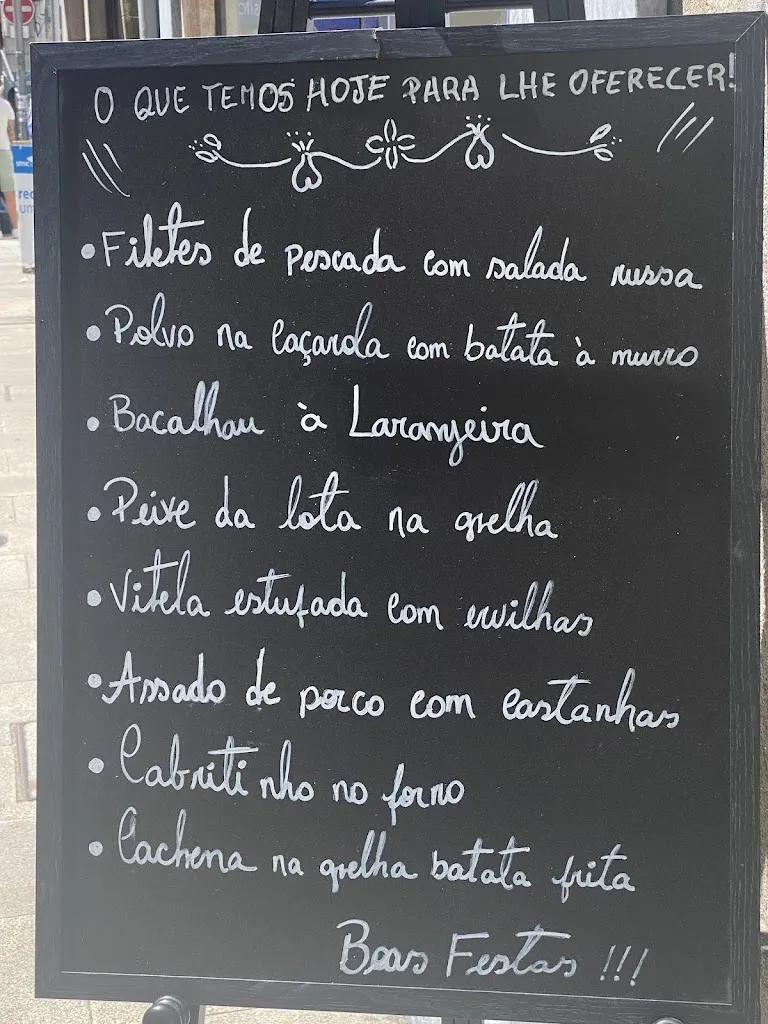 O QUE TEMOS HOJE PARA LHE OFERECER!
• Filetes de pescada com salada russa
• Polvo na caçarola com batata à murro
• Bacalhau à Laranjeira
• Peixe da lota na grelha
• Vitela estufada com ervilhas
• Assado de porco com castanhas
• Cabritinho no forno
• Cachena na grelha batata frita
Boas Festas !!!